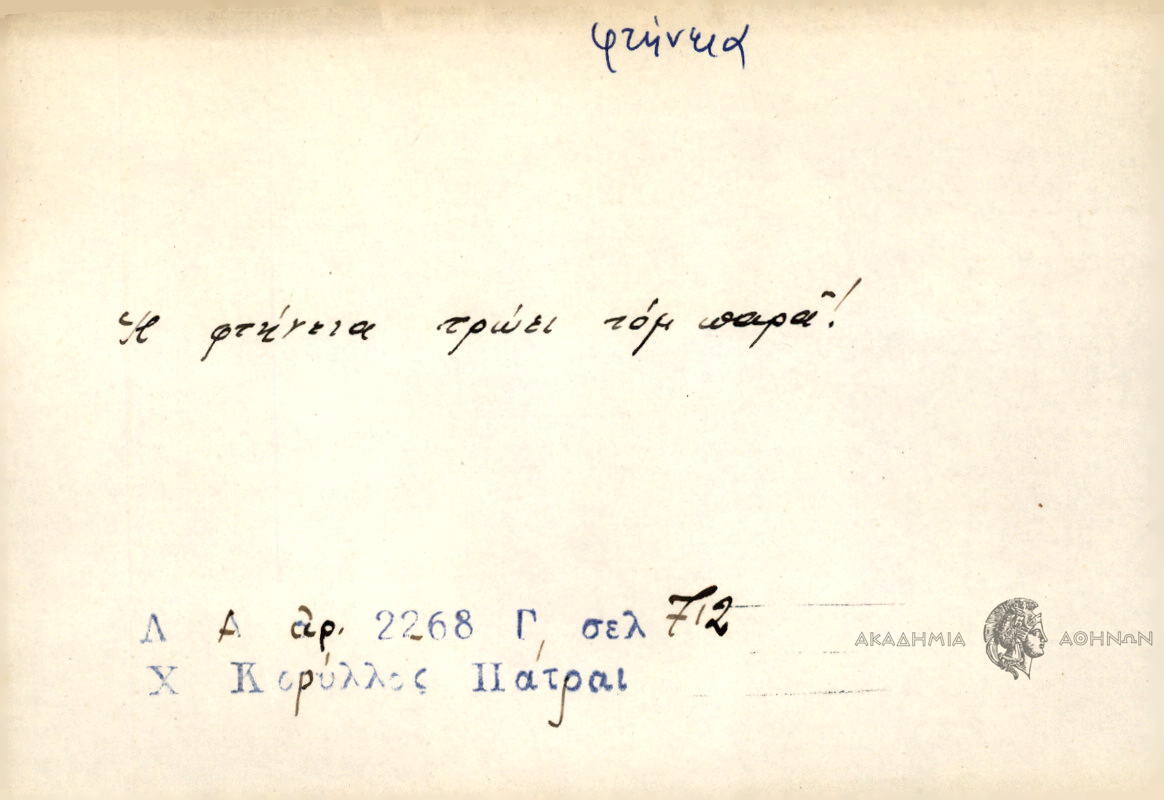 φτήνεια
Ἡ φτήνεια τρώει τόμ παρᾶ!
Λ Α ἀρ. 2268 Γ, σελ 712
Χ Κορύλλος Πάτραι
ΑΚΑΔΗΜΙΑ ΑΘΗΝΩΝ